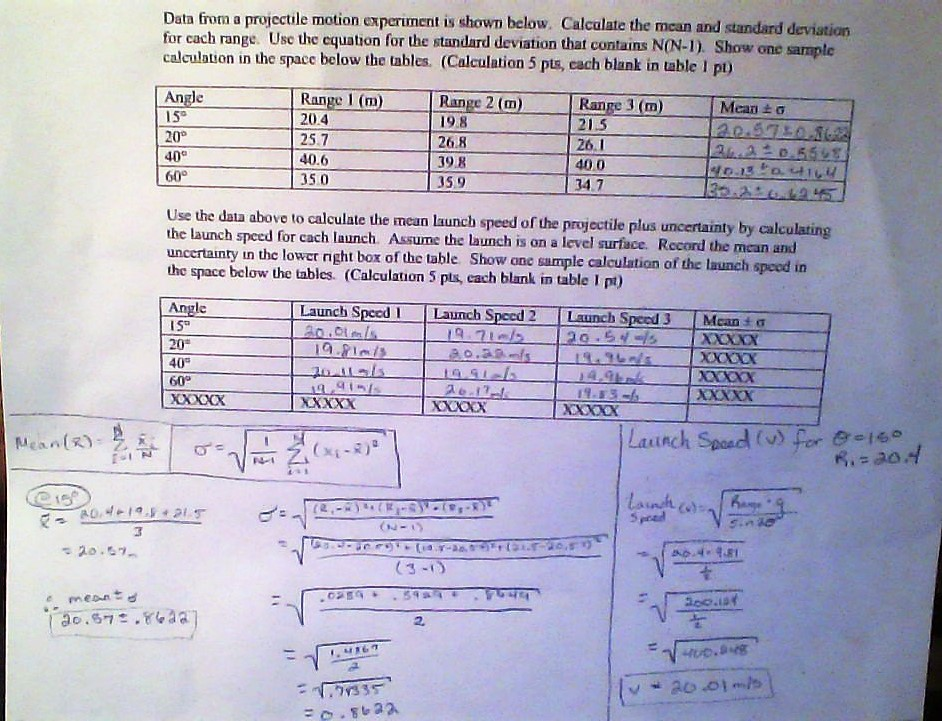 Data from a projectile motion experiment is shown below. Calculate the mean and standard deviation
for each range. Use the equation for the standard deviation that contains N(N-1). Show one sample
calculation in the space below the tables. (Calculation 5 pts, each blank in table 1 pt)
Angle Range 1 (m) Range 2 (m) Range 3 (m) Mean ± σ
15° 20.4 19.8 21.5 20.57±0.8622
20° 25.7 26.8 26.1 26.2±0.5568
40° 40.6 39.8 40.0 40.13±0.4164
60° 35.0 35.9 34.7 35.2±0.6245
Use the data above to calculate the mean launch speed of the projectile plus uncertainty by calculating
the launch speed for each launch. Assume the launch is on a level surface. Record the mean and
uncertainty in the lower right box of the table. Show one sample calculation of the launch speed in
the space below the tables. (Calculation 5 pts, each blank in table 1 pt)
Angle Launch Speed 1 Launch Speed 2 Launch Speed 3 Mean ± σ
15° 20.01m/s 19.71m/s 20.54m/s XXXXX
20° 19.81m/s 20.22m/s 19.96m/s XXXXX
40° 20.11m/s 19.91m/s 19.96m/s XXXXX
60° 19.91m/s 20.17m/s 19.83m/s XXXXX
XXXXX XXXXX XXXXX XXXXX
Mean(x̄) = N Σ i=1 xi/N
σ = √ 1/N-1 N Σ i=1 (xi - x̄)²
Launch Speed (v) for θ=15°
R₁ = 20.4
@15°
x̄ = 20.4+19.8+21.5
3
= 20.57m
∴ mean ± σ
20.57 ± .8622
σ = √ (R₁-x̄)²+(R₂-x̄)²+(R₃-x̄)²
(N-1)
(3-1)
= √ .0289 + .5929 + .8649
2
= √ 1.4867
2
= √.74335
= 0.8622
Launch Speed (v) = √ Range · g
sin2θ
= √ 20.4 · 9.81
½
= √ 200.124
½
= √ 400.248
v = 20.01 m/s